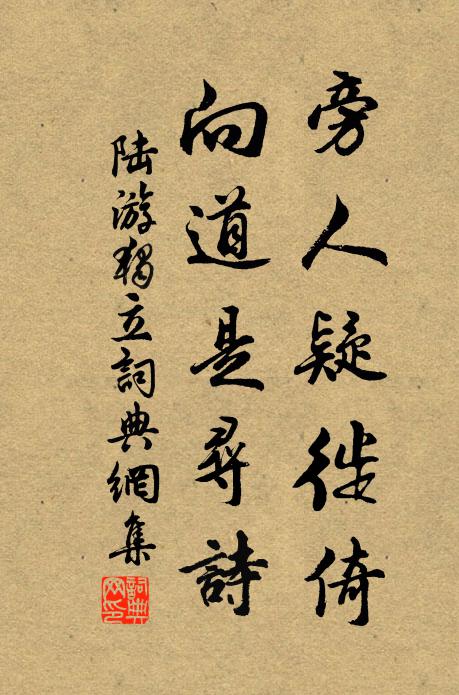 旁人疑徙倚
向道是尋詩
陸游獨立詞典網集
詞典网印